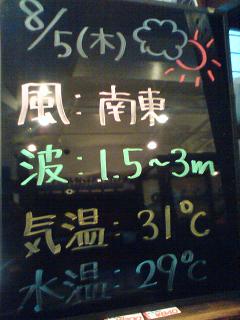 8/5(木)
風:南東
波:1.5~3m
気温:31℃
水温:29℃